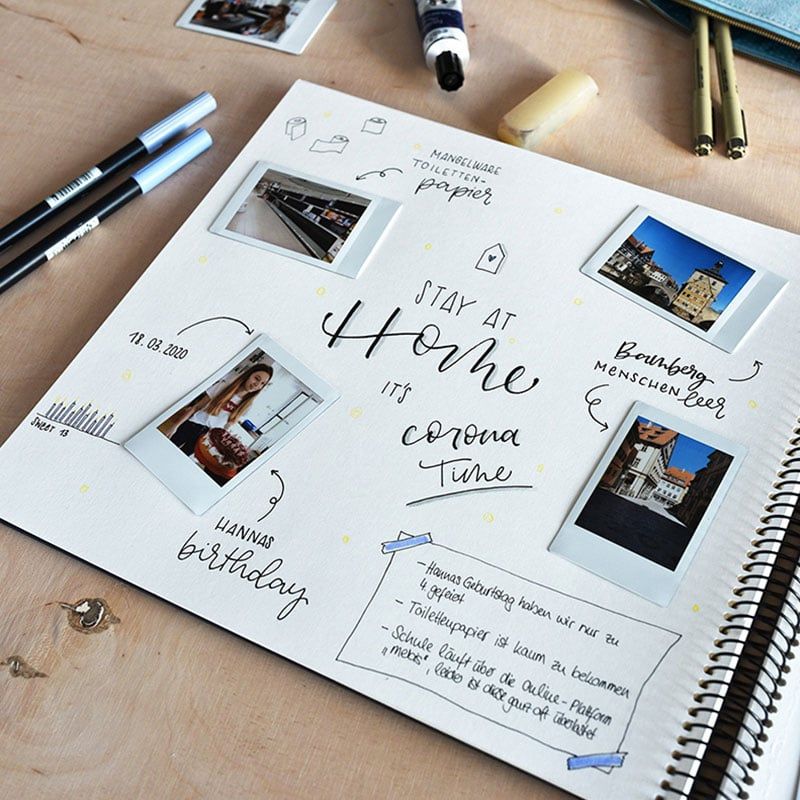 MANGELWARE
TOILETTEN-
papier
STAY AT
Home
IT'S
corona
Time
18.03.2020
SWEET 13
HANNAS
birthday
Bamberg
MENSCHENleer
- Hannas Geburtstag haben wir nur zu
4 gefeiert
- Toilettenpapier ist kaum zu bekommen
- Schule läuft über die Online-Plattform
„mebis“, leider ist diese ganz oft überlastet